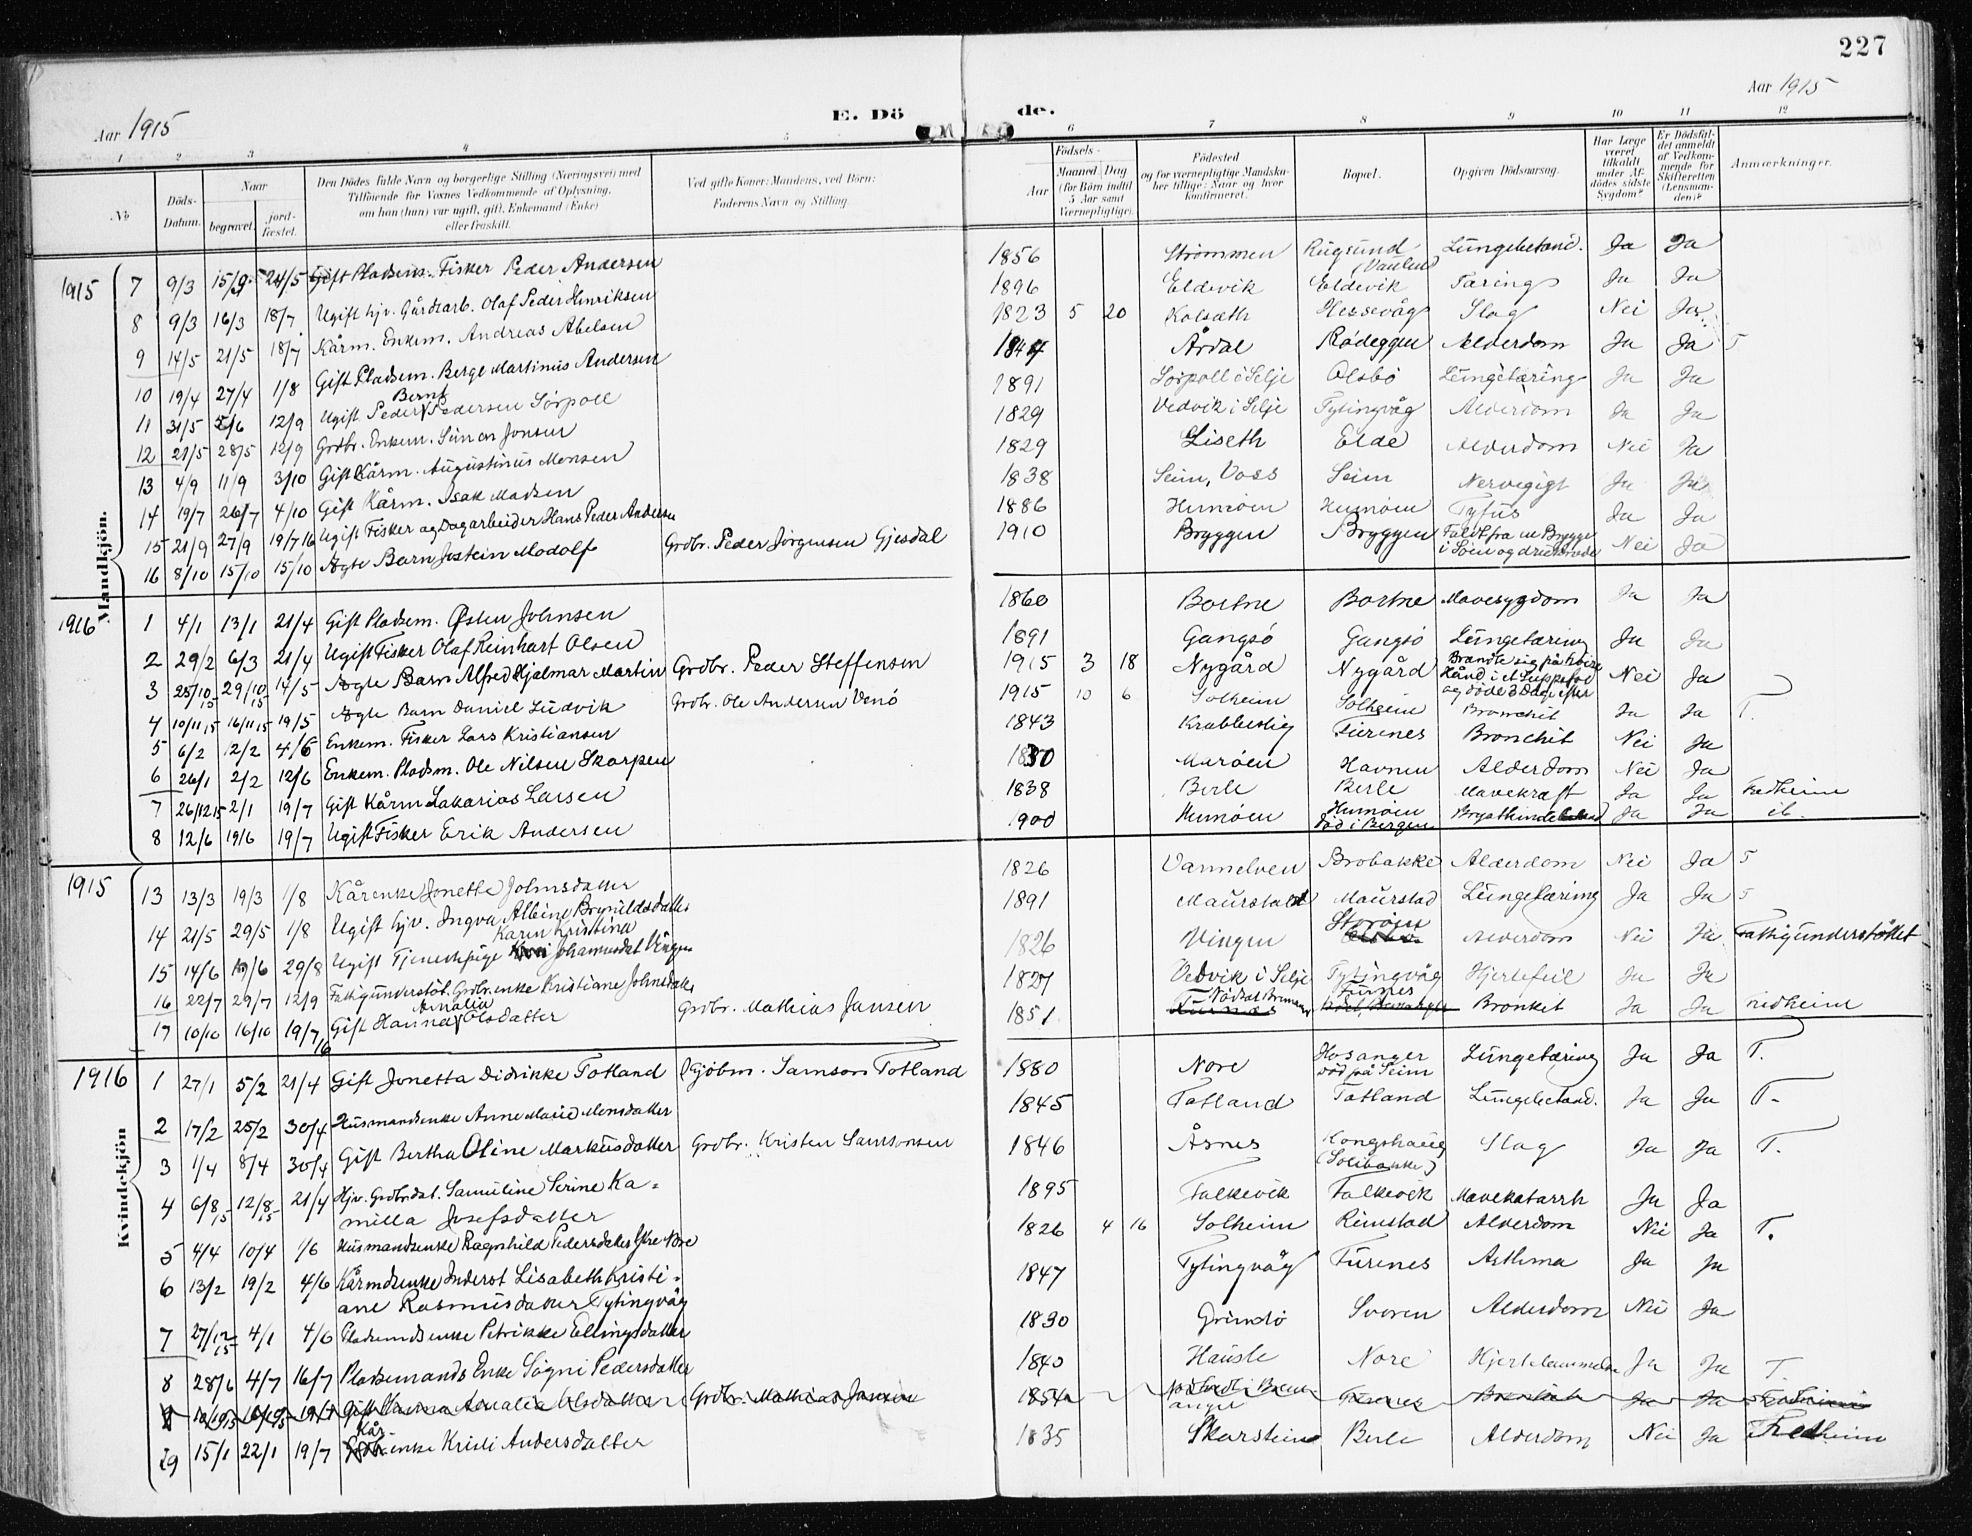 227
Aar 1915
E. Dö de.
Aar 1915
1 2 3 4 5 6 7 8 9 10 11 12
No
Döds-Datum.
Naar
begravet.
jord-fæstet.
Den Dödes fulde Navn og borgerlige Stilling (Næringsvei) med
Tilföiende for Voxnes Vedkommende af Oplysning,
om han (hun) var ugift, gift, Enkemand (Enke)
eller fraskilt.
Ved gifte Koner: Mandens, ved Börn:
Faderens Navn og Stilling.
Födsels-
Aar
Maaned Dag
(for Börn indtil
5 Aar samt
Værnepligtige).
Födested
og for værnepligtige Mandska-
ber tillige: Naar og hvor
konfirmeret.
Bopæl.
Opgiven Dödsaarsag.
Har Læge
været
tilkaldt
under Af-
dödes sidste
Sygdom?
Er Dödsfal-
det anmeldt
af Vedkom-
mende for
Skifteretten
(Lensman-
den)?
Anmærkninger.
Mandkjön.
1915
7 9/3 15/3 24/5 Gift Pladsm. Fisker Peder Andersen 1856 Strømmen Rugsund (Vaulen) Lungebetænd. Ja Ja
8 9/3 16/3 18/7 Ugift hjv. Gårdsarb. Olaf Peder Henriksen 1896 Eldevik Eldevik Tæring Ja Ja
9 14/5 21/5 18/7 Kårm. Enkem. Andreas Abelsen 1823 5 20 Kolseth Hessevåg Slag Nei Ja
10 19/4 27/4 1/8 Gift Pladsem. Berge Martinus Andersen 1844 Årdal Rødeggen Alderdom Ja Ja T
11 31/5 5/6 12/9 Ugift Peder Bernt Pedersen Sørpoll 1891 Sørpoll i Selje Olsbø Lungetæring Ja Ja
12 21/5 28/5 12/9 Grdbr. Enkem. Simon Jonsen 1829 Vedvik i Selje Tytingvåg Alderdom Ja Ja
13 4/9 11/9 3/10 Gift Kårm. Augustinus Monsen 1829 Liseth Elde Alderdom Nei Ja
14 19/7 26/7 4/10 Gift Kårm. Isak Madsen 1838 Seim, Voss Seim Nervegigt Ja Ja
15 21/9 27/9 19/7 16 Ugift Fisker og Dagarbeider Hans Peder Andersen 1886 Humøen Humøen Tyfus Ja Ja
16 8/10 15/10 15/10 Ægte Barn Jostein Modolf Grdbr. Peder Jørgensen Gjesdal 1910 Bryggen Bryggen Faldt fra en Brygge i Søen og druknede Nei Ja
1916
1 4/1 13/1 21/4 Gift Pladsem. Østen Johnsen 1860 Bortne Bortne Mavesygdom Ja Ja
2 29/2 6/3 21/4 Ugift Fisker Olaf Reinhart Olsen 1891 Gangsø Gangsø Lungetæring Ja Ja
3 25/10 15 29/10 15 14/5 Ægte Barn Alfred Hjalmar Martin Grdbr. Peder Steffensen 1915 3 18 Nygård Nygård Brændte sig på høire Hånd i et Suppefad og døde 3 Dage efter Nei Ja
4 10/11 15 16/11 15 19/5 Ægte Barn Daniel Ludvik Grdbr. Ole Andersen Venö 1915 10 6 Solheim Solheim Bronchit Ja Ja T.
5 6/2 12/2 4/6 Enkem. Fisker Lars Kristiansen 1843 Krabbestig Furenes Bronchit Nei Ja
6 26/1 2/2 12/6 Enkem. Pladsm. Ole Nilsen Skorpen 1830 Marøen Havnen Alderdom Nei Ja
7 26/12 15 2/1 19/7 Gift Kårm Zakarias Larsen 1838 Berle Berle Mavekræft Ja Ja Fedheim
8 12/6 19/6 19/7 Ugift Fisker Erik Andersen 1900 Humøen Humøen død i Bergen Brysthindebetænd Ja Ja ib.
Kvindekjön
1915
13 13/3 19/3 1/8 Kårenke Jonetta Johnsdatter 1826 Vannelven Brobakke Alderdom Nei Ja T
14 21/5 29/5 1/8 Ugift hjv. Ingva Albine Brynildsdatter 1891 Maurstad Maurstad Lungetæring Ja Ja T
15 14/6 19/6 29/8 Ugift Tjenestpige Karen Kristina Johannesdat Vingen 1826 Vingen Storøen Alderdom Nei Ja Fattigunderstöttet
16 22/7 29/7 12/9 Fattigunderstöt. Grdbr.enke Kristiane Johnsdatter 1827 Vedvik i Selje Tytingvåg Hjertefeil Ja Ja
17 10/10 16/10 19/7 16 Gift Hanna Amalia Olsdatter Grdbr. Mathias Jansen 1851 Nødset Bremanger Furnes Bronket Ja Ja Fredheim
1916
1 27/1 5/2 21/4 Gift Jonetta Didrikke Totland Gjöbm. Samson Totland 1880 Nore Hosanger død på Seim Lungetæring Ja Ja T.
2 17/2 25/2 30/4 Husmandsenke Anne Marie Monsdatter 1845 Totland Totland Lungebetænd. Ja Ja T.
3 1/4 8/4 30/4 Gift Bertha Oline Markusdatter Grdbr. Kristen Samsonsen 1846 Åsnes Kongshaug (Solibakke) Slag Ja Ja T.
4 6/8 15 12/8 15 21/4 Hjv. Grdbrdat. Samuline Serine Ka-
milla Josefsdatter 1895 Falkevik Falkevik Mavekatarrh Ja Ja
5 4/4 10/4 1/6 Husmandsenke Ragnhild Pedersdatter Ytre Nore 1826 4 16 Solheim Rimstad Alderdom Nei Ja T.
6 13/2 19/2 4/6 Kårmdsenke Inderst Lisabeth Kristi-
ane Rasmusdatter Tytingvåg 1847 Tytingvåg Furenes Asthma Ja Ja
7 27/12 15 4/1 4/6 Pladsmdsenke Petrikke Ellingsdatter 1830 Grindø Svoren Alderdom Nei Ja
8 28/6 4/7 16/7 Pladsemands Enke Sögni Pedersdatter 1840 Hausle Nore Hjertelammelse Ja Ja T.
10/10 15 16/10 15 19/7 Gift Hanna Amalia Olsdatter Grdbr. Mathias Jansen 1854 Furnes Bronkit Ja Ja Fredheim
9 15/1 22/1 19/7 Kårenke Kristi Andersdatter 1835 Skarstein Berle Alderdom Nei Ja Fredheim